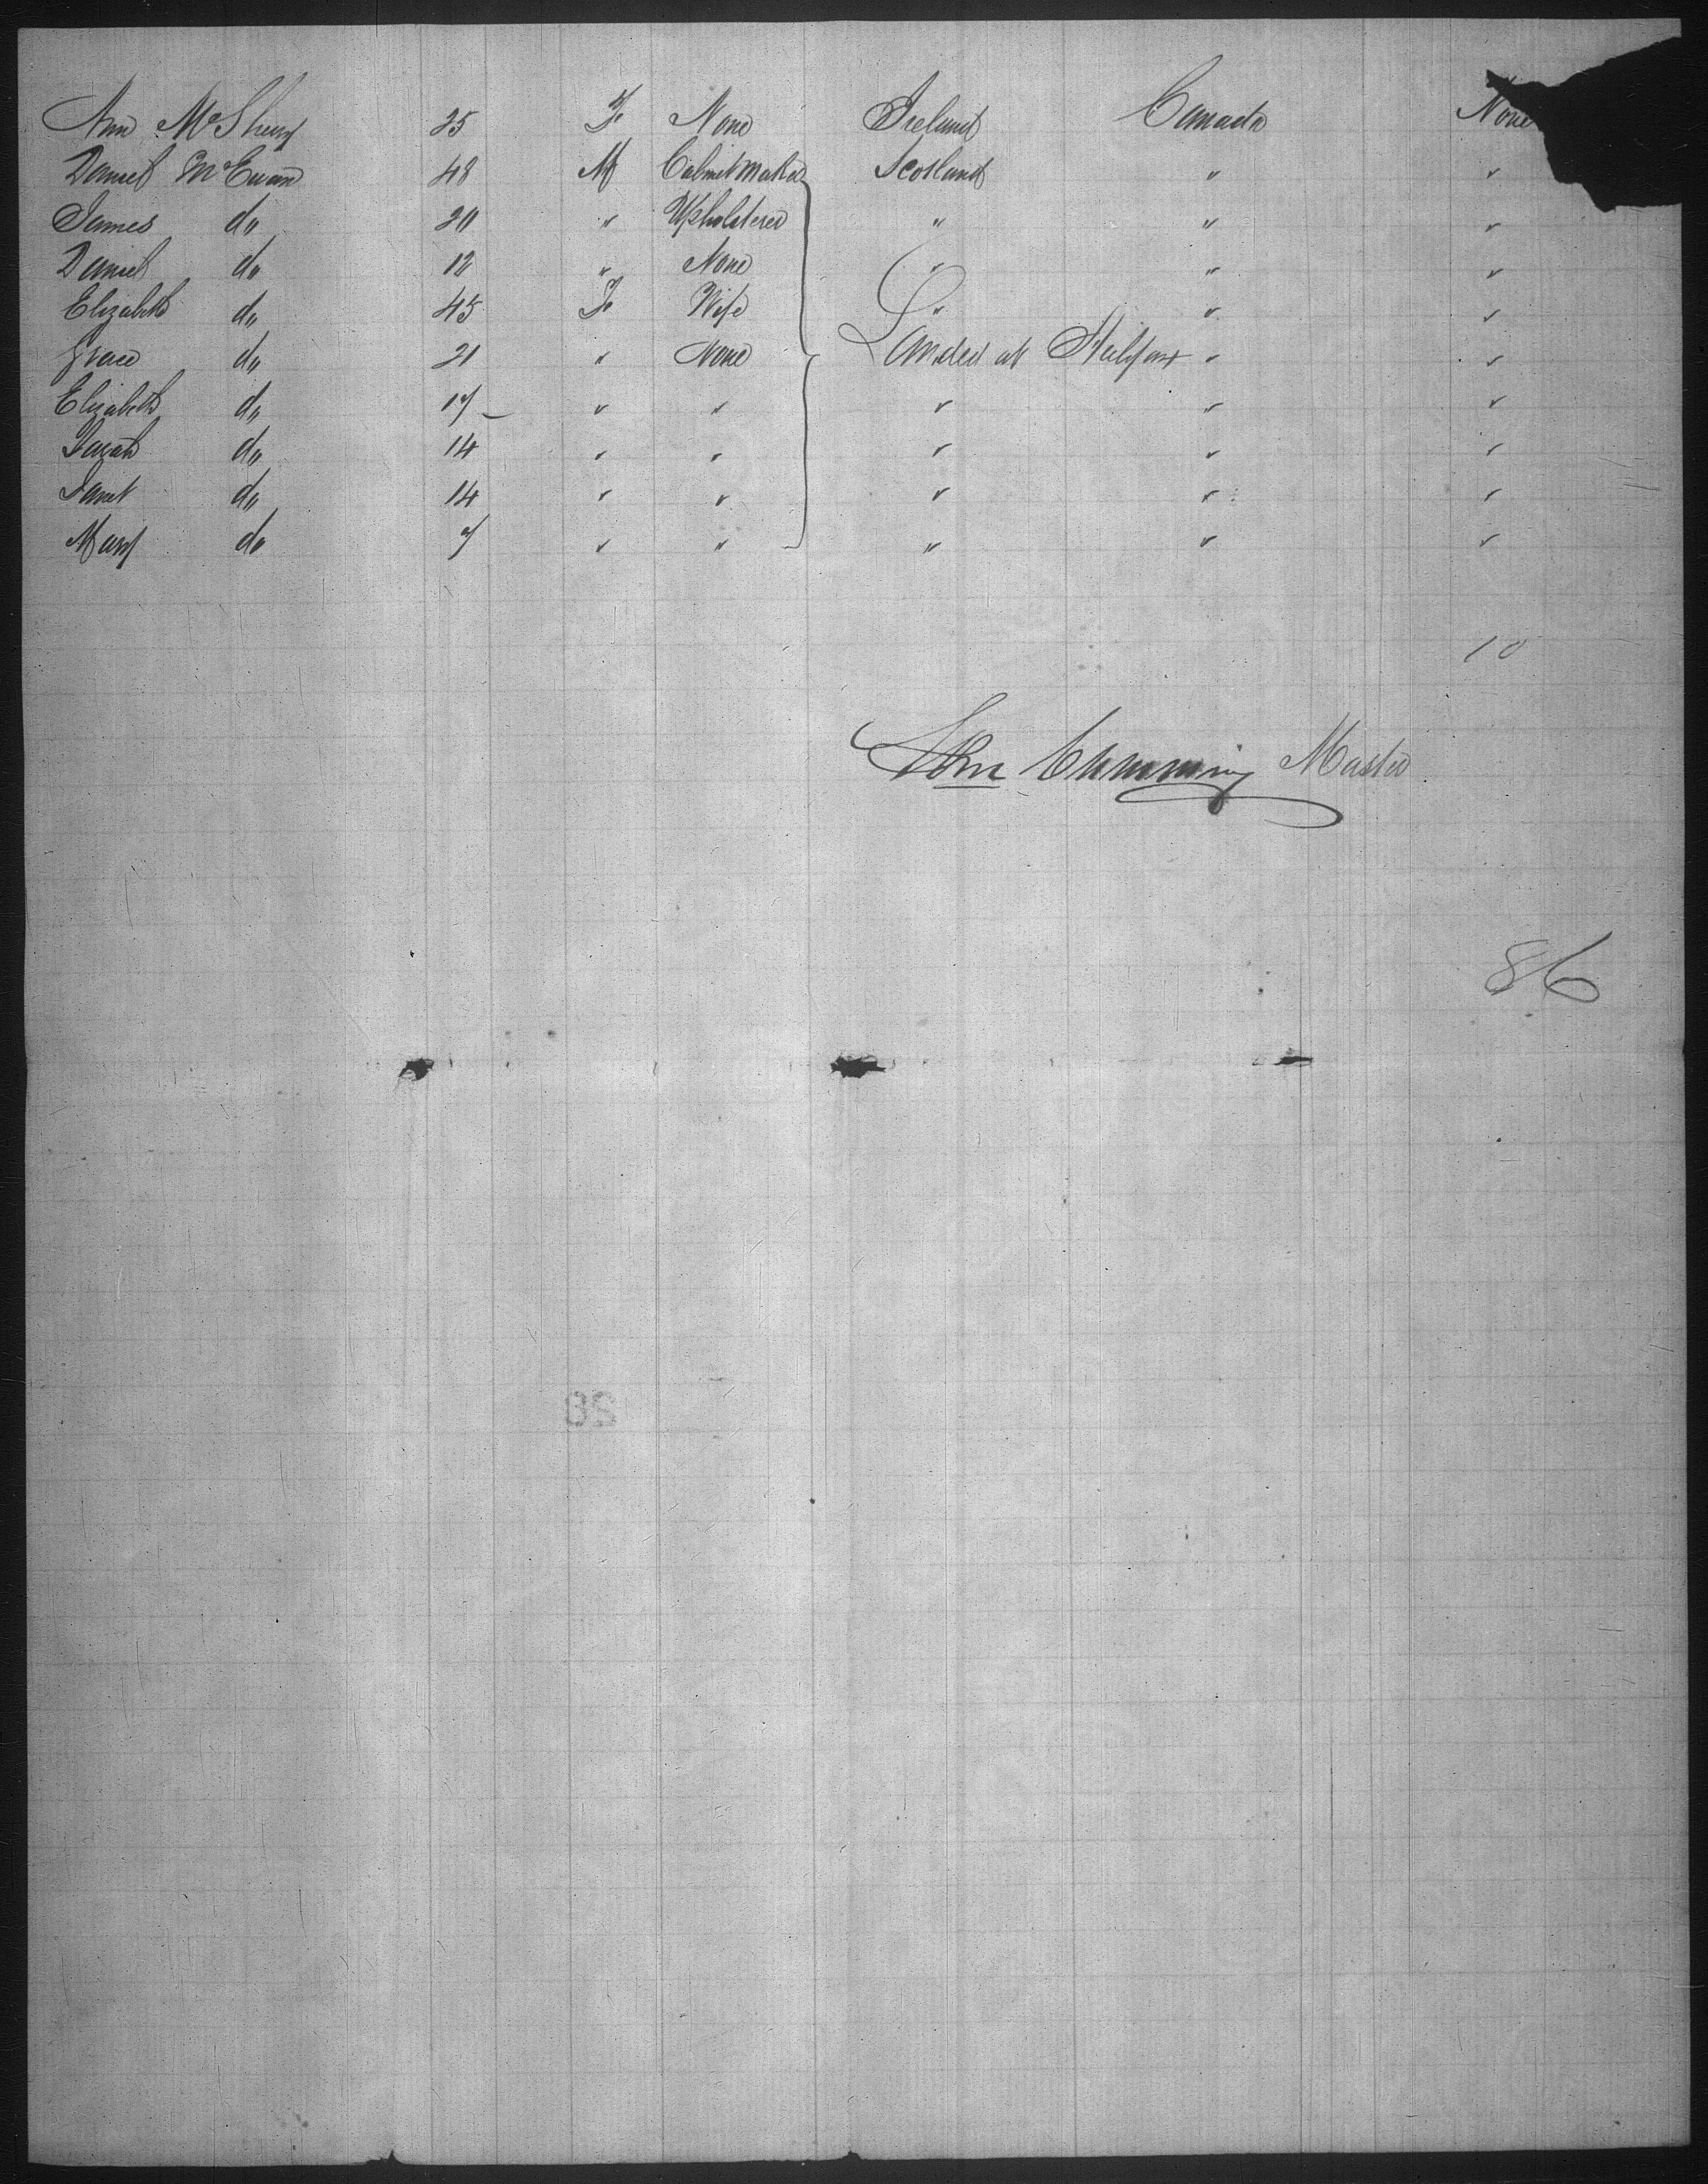 Ann McSherry 25 F None Ireland Canada None
Daniel McEwan 48 M Cabinet maker Scotland " "
James do 20 " Upholsterer " " "
Daniel do 12 " None " " "
Elizabeth do 45 F Wife " " "
Grace do 21 " None Landed at Halifax " "
Elizabeth do 17 " " " " "
Sarah do 14 " " " " "
Janet do 14 " " " " "
Mary do 7 " " " " "
10
John Cumming Master
86